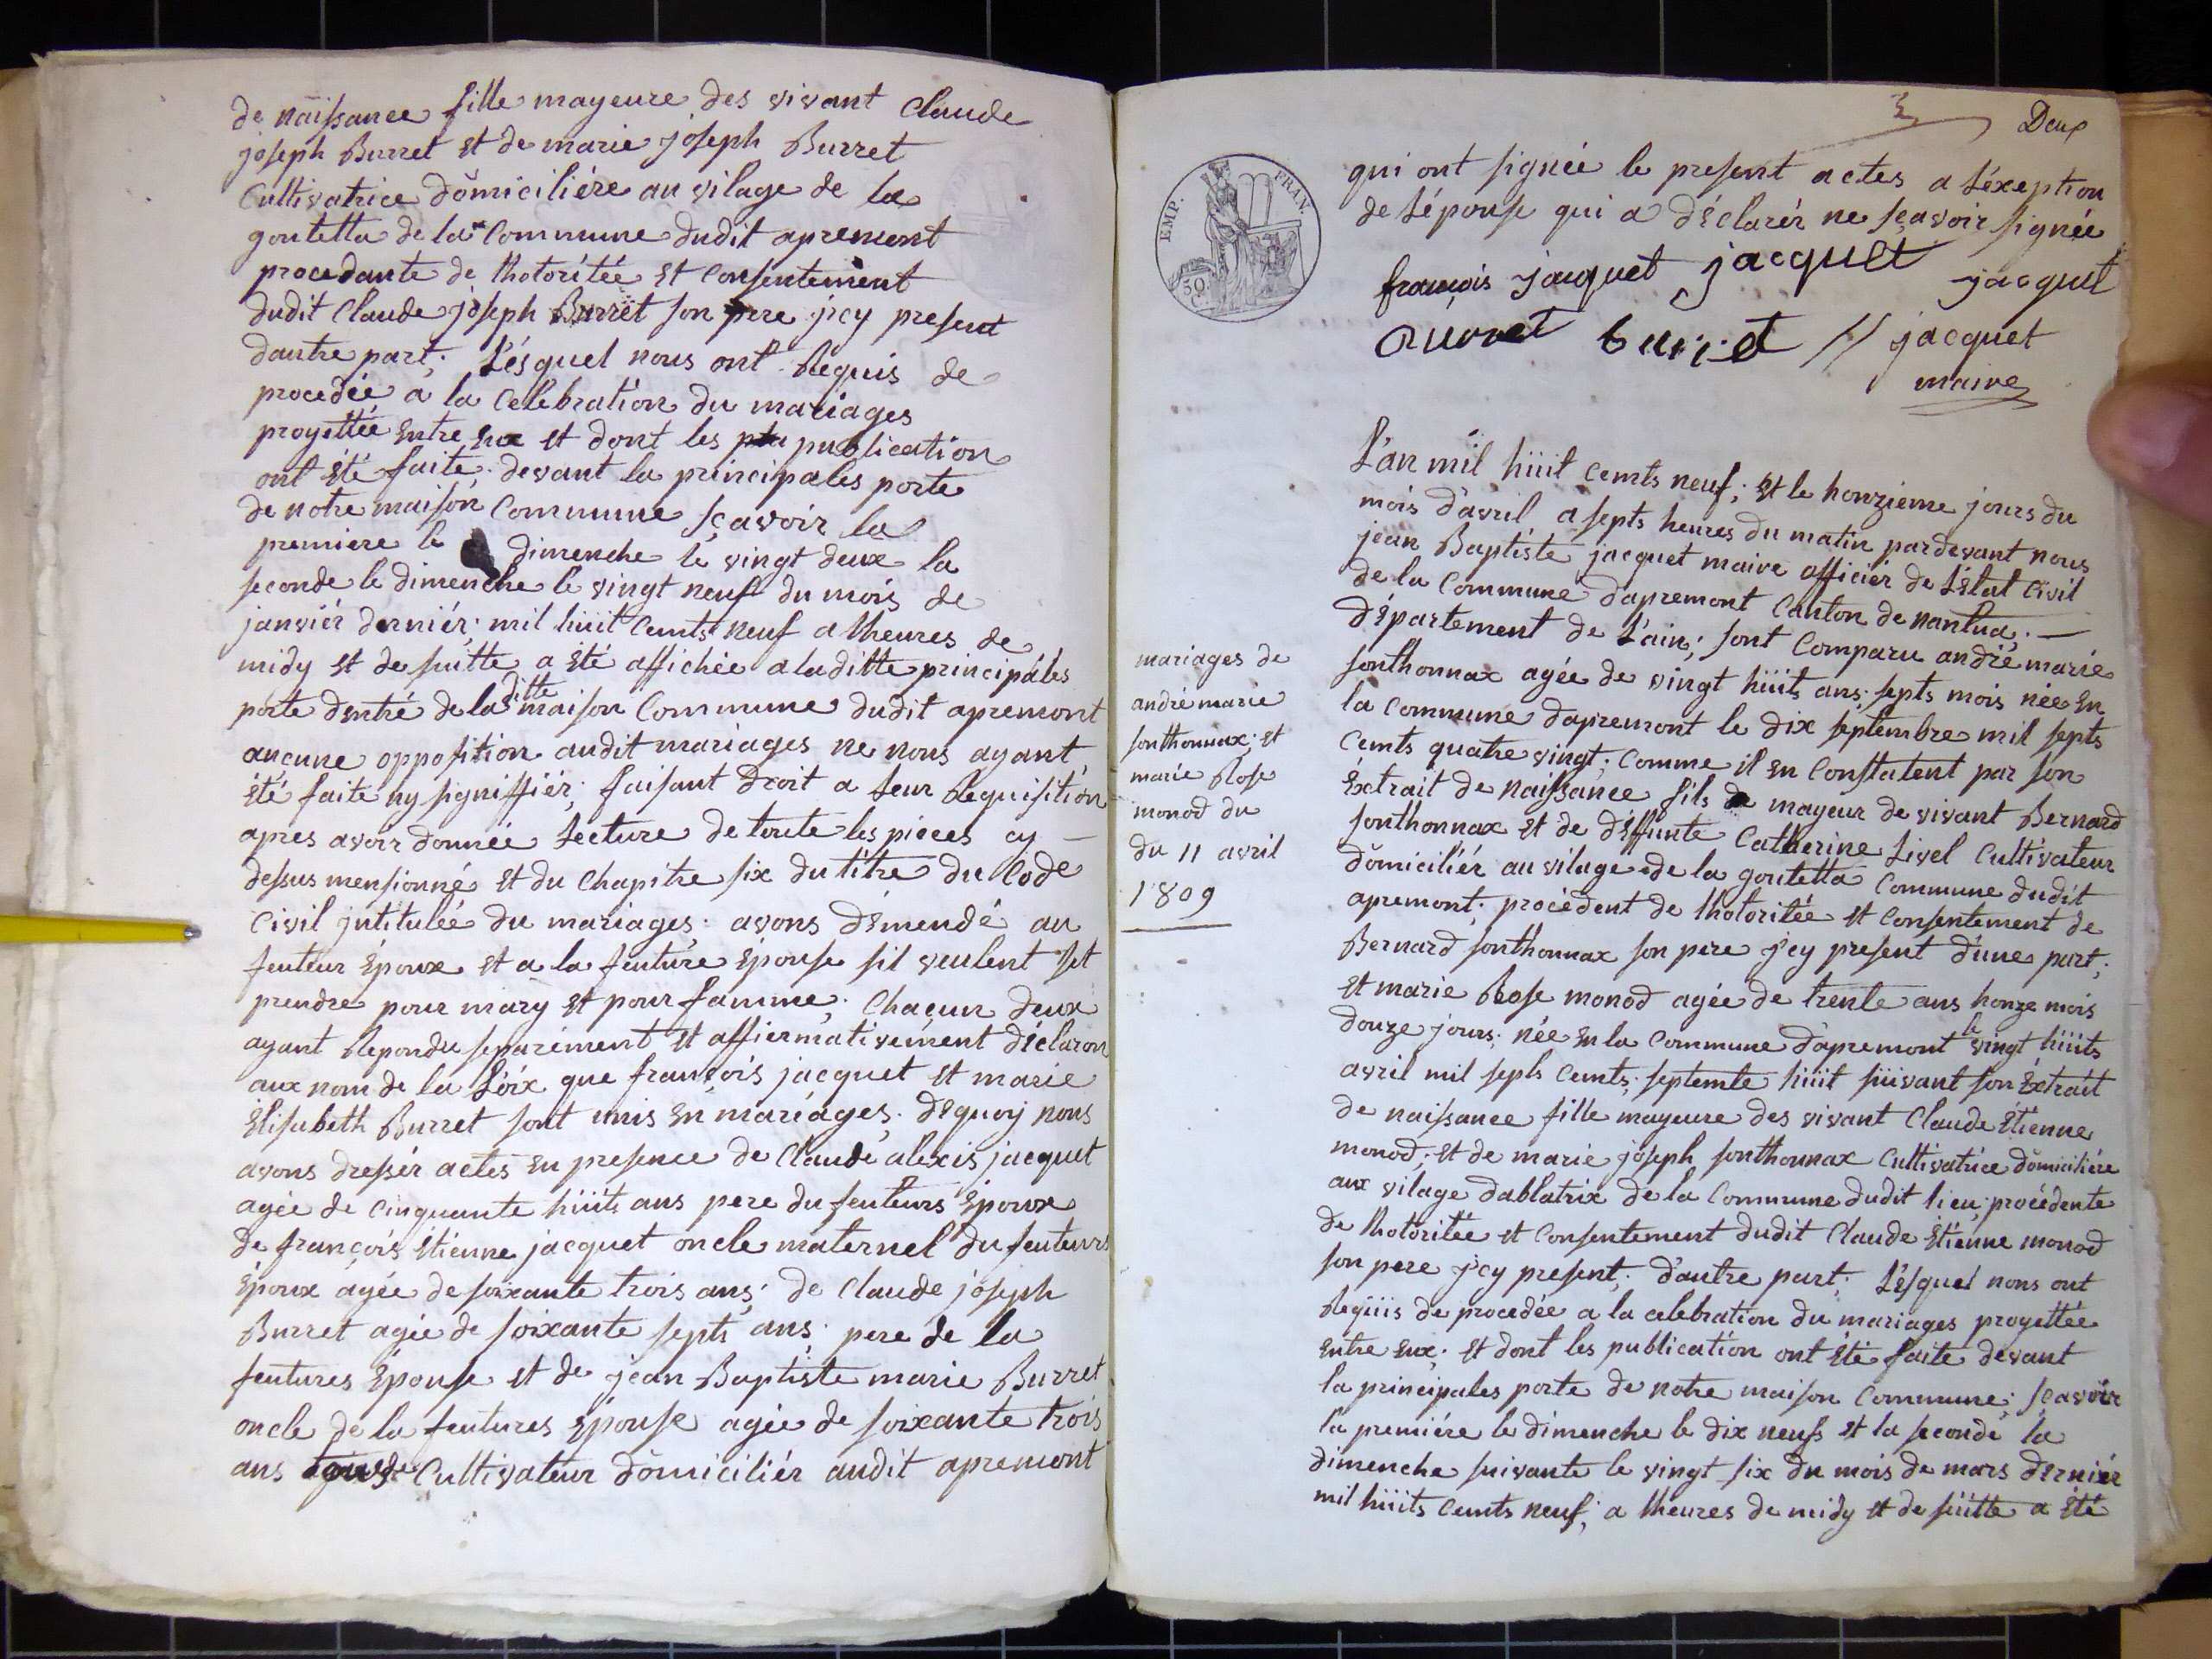 de naissance fille mayeure des vivant Claude
joseph Burret et de marie joseph Burret
Cultivatrice domiciliére au vilage de la
goutetta de la Commune dudit apremont
procedante de lhotoritée et Consentement
dudit Claude joseph Burret son pere jcy present
dautre part; Lésquel nous ont Requis de
procedée a la Celebration du mariages
proyettée entre eux et dont les publication
ont été faite devant la principales porte
de notre maison Commune sçavoir la
premiere le dimenche le vingt deux la
seconde le dimenche le vingt neuf du mois de
janviér derniér; mil huit Cemts neuf a lheures de
midy et de suitte a eté affichée a laditte principáles
porte dentré de la ditte maison Commune dudit apremont
aucune opposition audit mariages ne nous ayant
été faite ny signiffiér; faisant droit a leur Requisition
apres avoir donnée Lecture de toute les pieces cy
dessus mensionné et du Chapitre six du titre du Code
Civil jntitulée du mariages: avons démendé au
feuteur époux et a la feuture épouse sil veulent set
prendre pour mary et pour famme; Chacun deux
ayant Repondu separément et affiermativement déclaron
aux nom de la Loix que françois jacquet et marie
élisabeth Burret sont unis en mariages; dequoy nous
avons dressér actes en presence de Claude alexis jacquet
agée de Cinquante huits ans pere du feuteurs époux
de françois étienne jacquet oncle maternel du feuteurs
époux agée de soixante trois ans; de Claude joseph
Burret agée de soixante septs ans; pere de la
feutures épouse et de jean Baptiste marie Burret
oncle de la feutures épouse agée de soixante trois
ans Cultivateur domiciliér audit apremont
Deux
qui ont signée le present actes a Léxeption
de Lépouse qui a déclarér ne sçavoir signée
EMP. FRAN.
50
françois jacquet jacquet jacquet
burret jacquet
maire
mariages de
andré marie
sonthonnax; et
marie Rose
monod du
du 11 avril
1809
L'an mil huit Cemts neuf; et le honzieme jours du
mois d'avril a septs heures du matin pardevant nous
jean Baptiste jacquet maire officiér de Létat Civil
de la Commune dapremont Canton de nantua;
département de Lain; sont Comparu andré marie
sonthonnax agée de vingt huits ans; septs mois née en
la Commune dapremont le dix septembre mil septs
Cemts quatre vingt; Comme il en Constatent par son
éxtrait de naissance fils mayeur de vivant Bernard
sonthonnax et de déffunte Catherine Livel Cultivateur
domiciliér au vilage de la goutetta Commune dudit
apremont; procèdent de lhotoritée et Consentement de
Bernard sonthonnax son pere jcy present d'une part;
et marie Rose monod agée de trente ans honze mois
douze jours; née en la Commune dapremont le vingt huits
avril mil septs Cemts; septemte huit suivant son éxtrait
de naissance fille mayeure des vivant Claude étienne
monod; et de marie joseph sonthonnax Cultivatrice domiciliére
aux vilage dablatrix de la Commune dudit lieu; procédente
de lhotoritée et Consentement dudit Claude étienne monod
son pere jcy present; d'autre part; Lésquel nous ont
Requis de procedée a la celebration du mariages proyettée
entre eux; et dont les publication ont été faite devant
la principales porte de notre maison Commune; sçavoir
la premiére le dimenche le dix neufs et la seconde la
dimenche suivante le vingt six du mois de mars derniér
mil huits Cemts neuf; a lheures de midy et de suitte a été